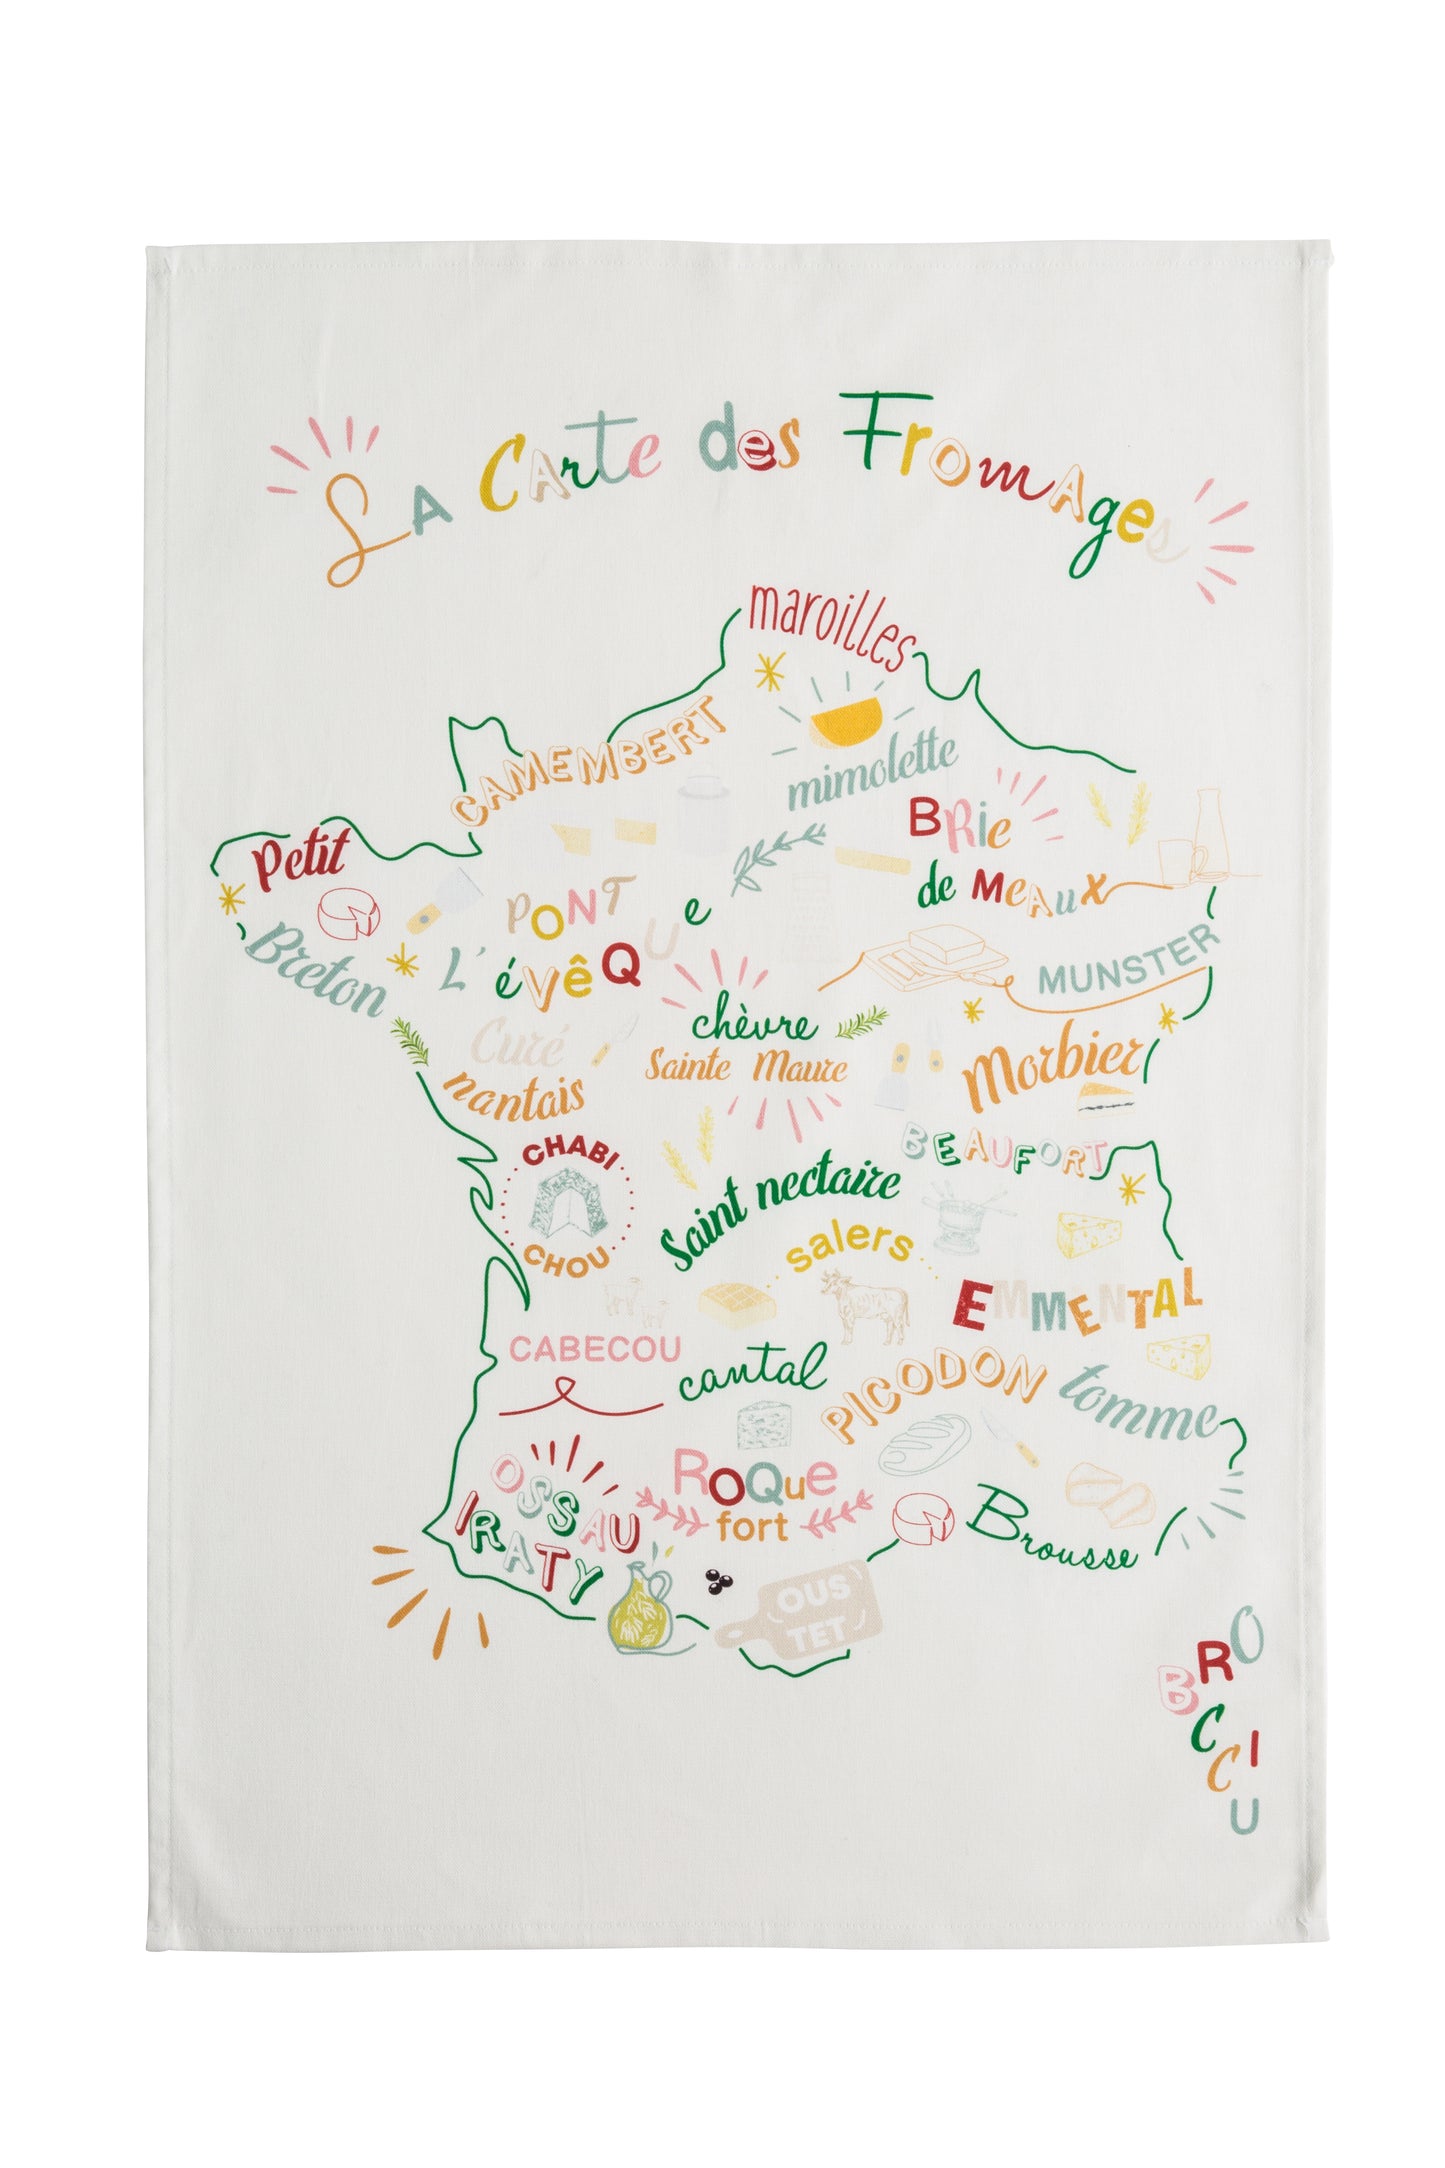 LA CArte des FromAges
maroilles
CAMEMBERT
mimolette
BRie
de MeAux
Petit
Breton
PONT
L'évêQUe
MUNSTER
Curé
nantais
chèvre
Sainte Maure
Morbier
BEAUFORT
CHABI
CHOU
Saint nectaire
salers
EMMENTAL
CABECOU
cantal
PICODON
tomme
OSSAU
IRATY
ROQue
fort
Brousse
OUS
TET
BROCCIU